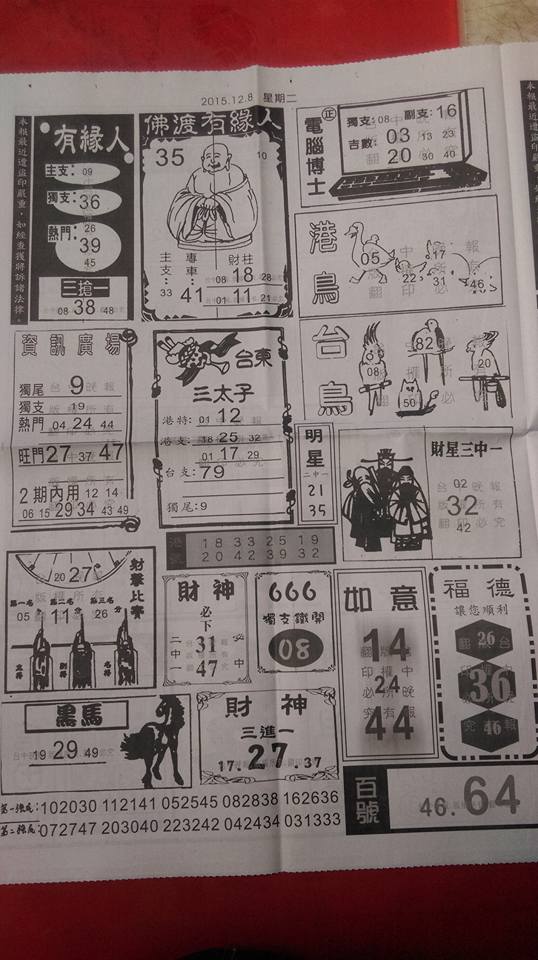 2015.12.8 星期二
本報最近遭盜印嚴重，如經查獲將訴諸法律。
有緣人
主支：09
獨支：36
熱門：
26
39
45
三搶一
08 38 48
佛渡有緣人
35
10
主支：33
專車：41
財柱
08 18 28
01 11 21
電腦博士
正
獨支：08 副支：16
吉數：03 13 23
20 30 40
港鳥
05
17
22
31
46
資訊廣場
獨尾 9
獨支 19
熱門 04 24 44
旺門 27 37 47
2期內用 12 14
06 15 29 34 43 49
台東
三太子
港特：01 12
港支：18 25 32
01 17 29
台支：79
獨尾：9
台鳥
08
82
20
50
明星
二中一
21
35
財星三中一
02
32
42
港數
18 33 25 19
20 42 39 32
射擊比賽
20 27
第一名 第二名 第三名
05 11 26
財神
必下
二中一
31
47
必中
666
獨支鐵開
08
如意
14
24
44
福德
讓您順利
26
36
46
黑馬
19 29 49
財神
三進一
17.27.37
百號
46.64
102030 112141 052545 082838 162636
072747 203040 223242 042434 031333